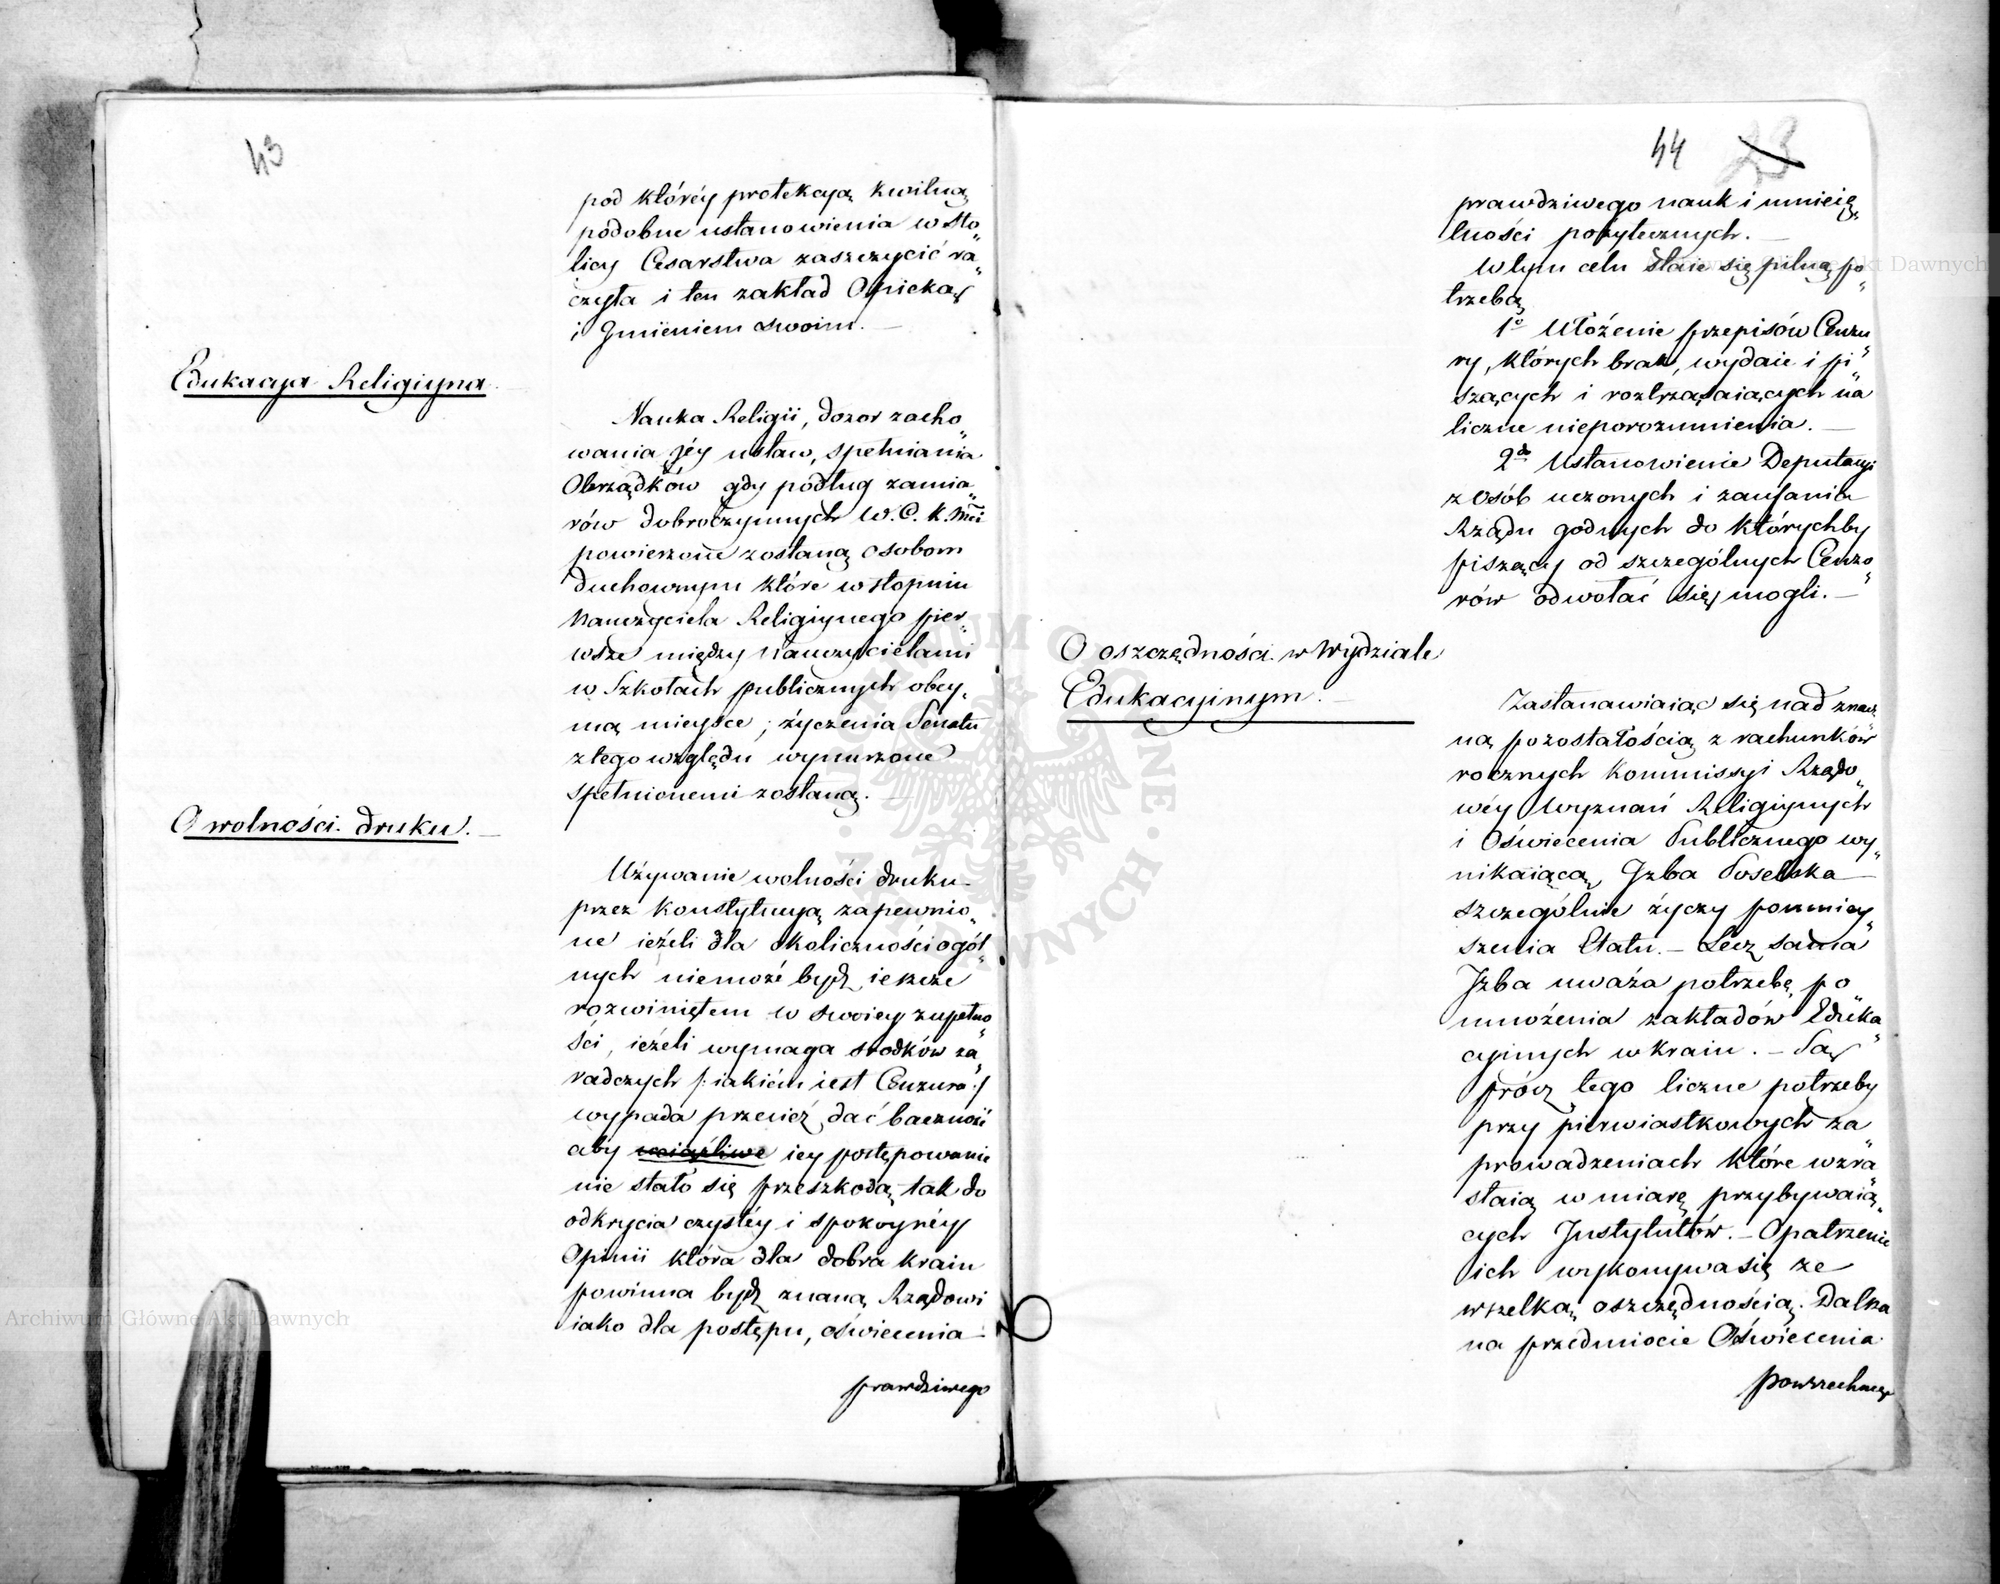 43
pod któréy protekcyą kwitną
podobne ustanowienia w Sto„
licy Cesarstwa zaszczycić ra„
czyła i ten zakład Opieką
i Jmieniem swoim. —
Edukacya Religiyna
Nauka Religii, dozor zacho„
wania jéy ustaw, spełniania
Obrządków gdy podług zamia„
rów dobroczynnych W. C. K. Mci
powierzone zostaną osobom
duchownym które w stopniu
Nauczyciela Religiynego pier„
wsze między Nauczycielami
w Szkołach publicznych obey„
mą mieysce; życzenia Senatu
z tego względu wynurzone
spełnionemi zostaną. —
O wolności druku. —
Używanie wolności druku
przez Konstytucyą zapewnio„
ne ieżeli dla okoliczności ogól„
nych niemoże bydź ieszcze
rozwiniętem w swoiey zupełno„
ści, ieżeli wymaga srodków za„
radczych /: iakiém iest Cenzura :/
wypada przecież dać baczność
aby uciążliwe iey postępowanie
nie stało się przeszkodą tak do
odkrycia czystéy i spokoynéy
Opinii która dla dobra kraiu
powinna bydź znaną Rządowi
iako dla postępu, oświecenia —
prawdziwego
44 23
prawdziwego nauk i umieię„
tności pożytecznych. —
W tym celu staie się pilną po„
trzebą
1o Ułożenie przepisów Cenzu„
ry, których brak, wydaie i pi„
szących i roztrząsaiących na
liczne nieporozumienia. —
2do Ustanowienie Deputacyi
z osób uczonych i zaufania
Rządu godnych do którychby
piszący od szczególnych Cenzo„
rów odwołać się mogli. —
O oszczędności w Wydziale
Edukacyinym. —
Zastanawiaiąc się nad znacz„
ną pozostałością z rachunków
rocznych Kommissyi Rządo„
wéy Wyznań Religiynych
i Oświecenia Publicznego wy„
nikaiącą, Jzba Poselska
szczególnie życzy pomniey„
szenia Etatu. — Lecz sama
Jzba uważa potrzebę po„
mnożenia zakładów Eduka„
cyinych w kraiu. — Są
prócz tego liczne potrzeby
przy pierwiastkowych za„
prowadzeniach które wzra„
staią w miarę przybywaią„
cych Jnstytutów. — Opatrzenie
ich wykonywa się ze
wszelką oszczędnością. Dalsza
na przedmiocie Oświecenia
powszechnego
Archiwum Główne Akt Dawnych